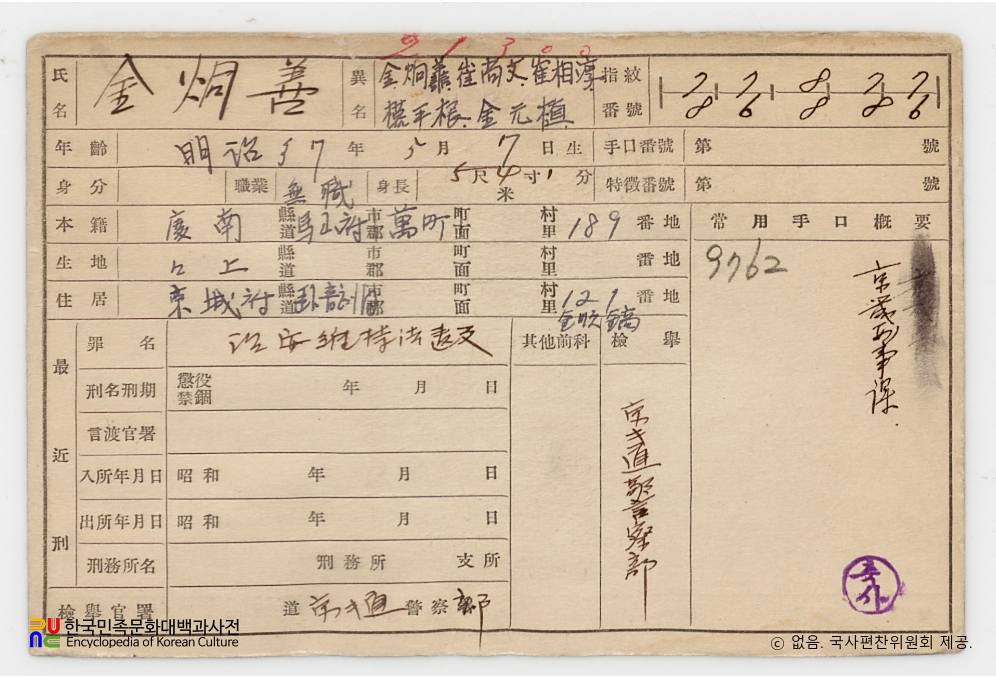 21300
氏名 金炯善 異名 金炯善 崔尚文 崔相淳 指紋番號
金元植
年齡 明治37年5月7日生 手口番號 第 號
身分 職業 無職 身長 5尺4寸1分 米 特徵番號 第 號
本籍 慶南 縣道 馬山府 市郡 萬町 町面 村里 189番地 常用手口概要
生地 仝上 縣道 市郡 町面 村里 番地 9762
住居 京城府 縣道 市郡 町面 村里 121番地
京畿刑事課
最近刑
罪名 治安維持法違反 其他前科 檢舉
刑名刑期 懲役 禁錮 年 月 日
京畿道警察部
言渡官署
入所年月日 昭和 年 月 日
出所年月日 昭和 年 月 日
刑務所名 刑務所 支所
檢舉官署 道 京畿道 警察部
한국민족문화대백과사전
Encyclopedia of Korean Culture
ⓒ 없음. 국사편찬위원회 제공.